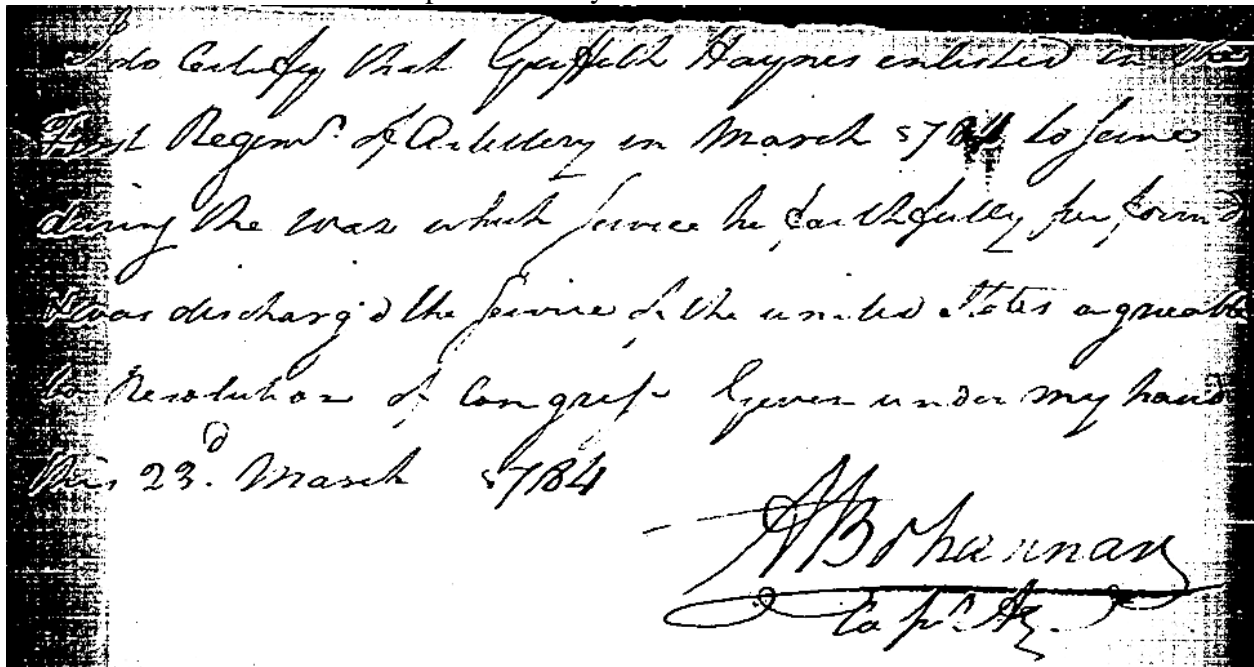 I do Certify that Griffith Haynes enlisted in the
First Regimt. of Artillery in March to serve
during the war which service he faithfully performd
& was discharg'd the service of the united States agreeable
to Resolution of Congress Given under my hand
this 23d. March 1784
ABohannan
Capt. Ay.